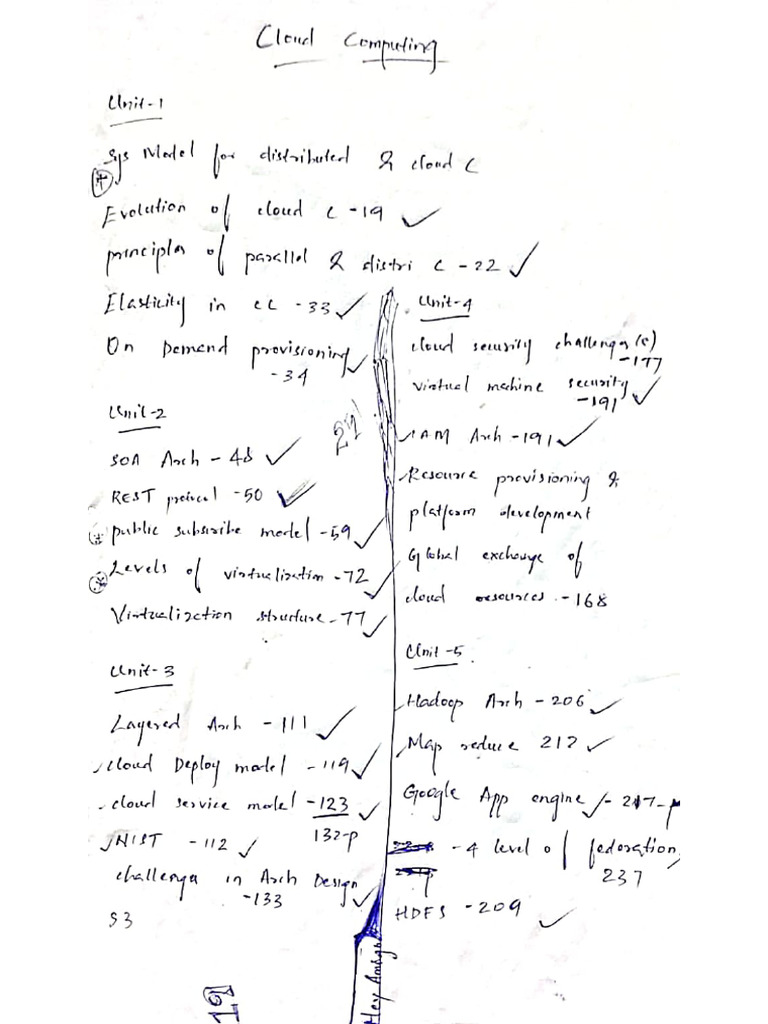 Cloud Computing
Unit-1
Sys Model for distributed & cloud C
Evolution of cloud C -19
principles of parallel & distri C -22
Elasticity in CC -33
On Demand provisioning
-34
Unit-2
SOA Arch - 48
REST protocol -50
public subscribe model -59
Levels of virtualization -72
Virtualization structure -77
Unit-3
Layered Arch - 111
cloud Deploy model - 119
cloud service model -123
132-p
NIST - 112
challenges in Arch Design
-133
S3
19
27
Unit-4
cloud security challenges(c)
-177
virtual machine security
-191
IAM Arch -191
Resource provisioning &
platform development
Global exchange of
cloud resources -168
Unit-5
Hadoop Arch -206
Map reduce 212
Google App engine - 217-p
-4 level of federation
237
HDFS -209
Hey Amigo